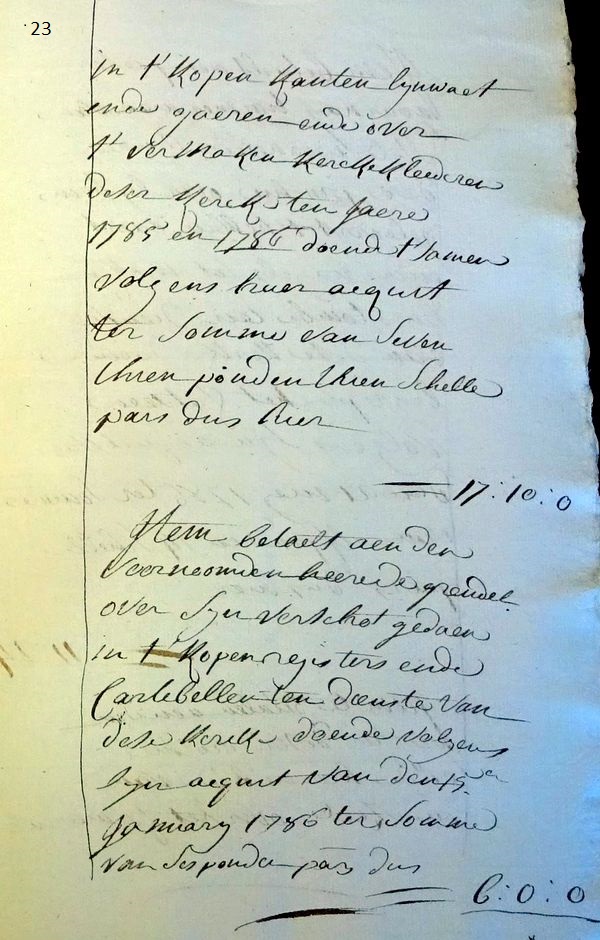 23
in t' Kopen Kanten lynwaet
ende gaeren ende over
t' vermaken Kercke Kleederen
deser Kerck ten jaere
1785 en 1786 doende t' samen
volgens haer acquit
ter somme van seven
thien ponden thien schelle
pars dus hier
17 : 10 : 0
Item betaelt aen den
voornoomden heere de grendel
over syn verschot gedaen
in t' Kopen registers ende
Cartebellen ten dienste van
dese Kerck doende volgens
syn acquit van den
January 1786 ter somme
van ses ponden pars dus
6 : 0 : 0